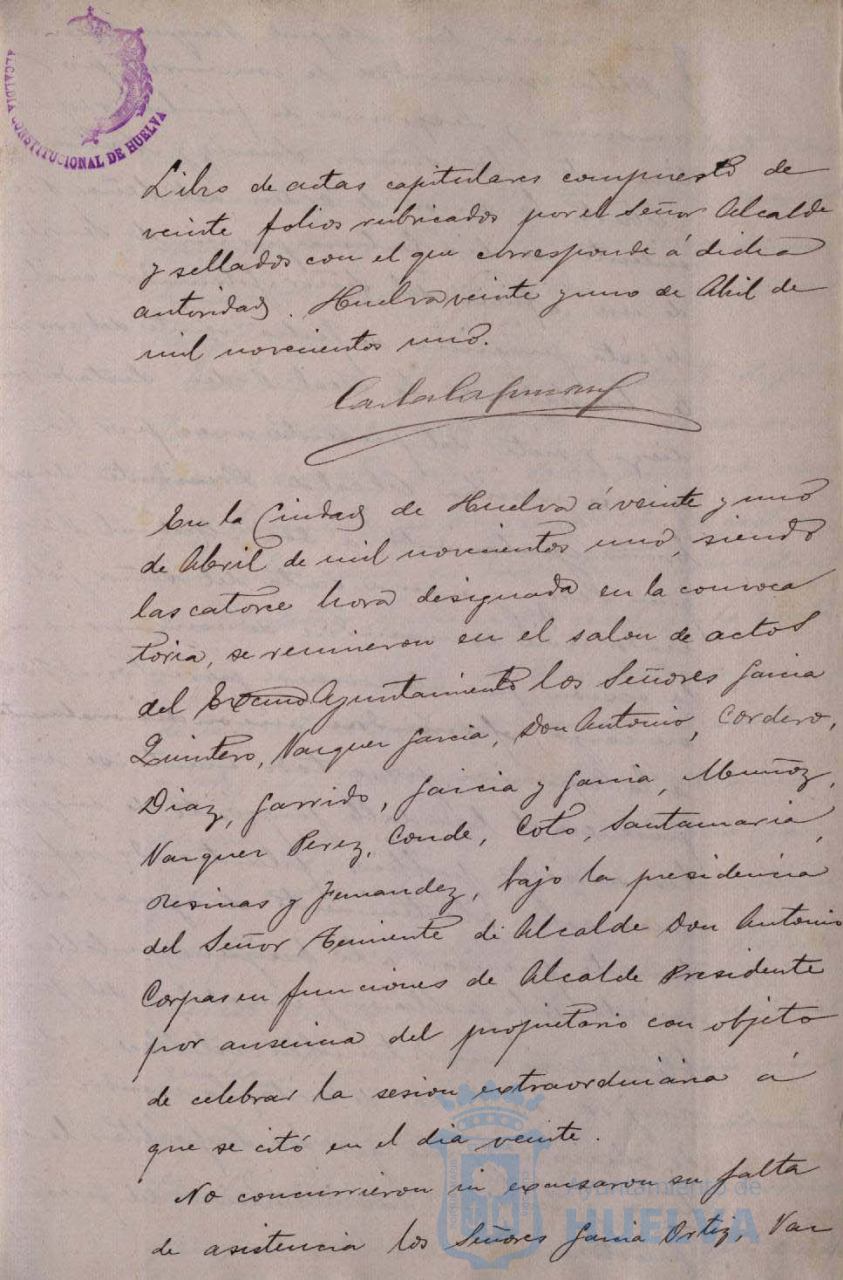 ALCALDIA CONSTITUCIONAL DE HUELVA
Libro de actas capitulares compuesto de
veinte folios rubricados por el Señor Alcalde
y sellados con el que corresponde á dicha
autoridad. Huelva veinte y uno de Abril de
mil novecientos uno.
En la Ciudad de Huelva á veinte y uno
de Abril de mil novecientos uno, siendo
las catorce hora designada en la convoca
toria, se reunieron en el salon de actos
del Excmo Ayuntamiento los Señores Garcia
Quintero, Vazquez Garcia, Don Antonio, Cordero,
Diaz, Garrido, Garcia y Garcia, Muñoz,
Vazquez Perez, Conde, Coto, Santamaria,
Resinas y Fernandez, bajo la presidencia
del Señor Teniente de Alcalde Don Antonio
Corpas en funciones de Alcalde Presidente
por ausencia del propietario con objeto
de celebrar la sesion extraordinaria á
que se citó en el dia veinte.
No concurrieron ni excusaron su falta
de asistencia los Señores Garcia Ortiz, Vaz
Ayuntamiento de
HUELVA